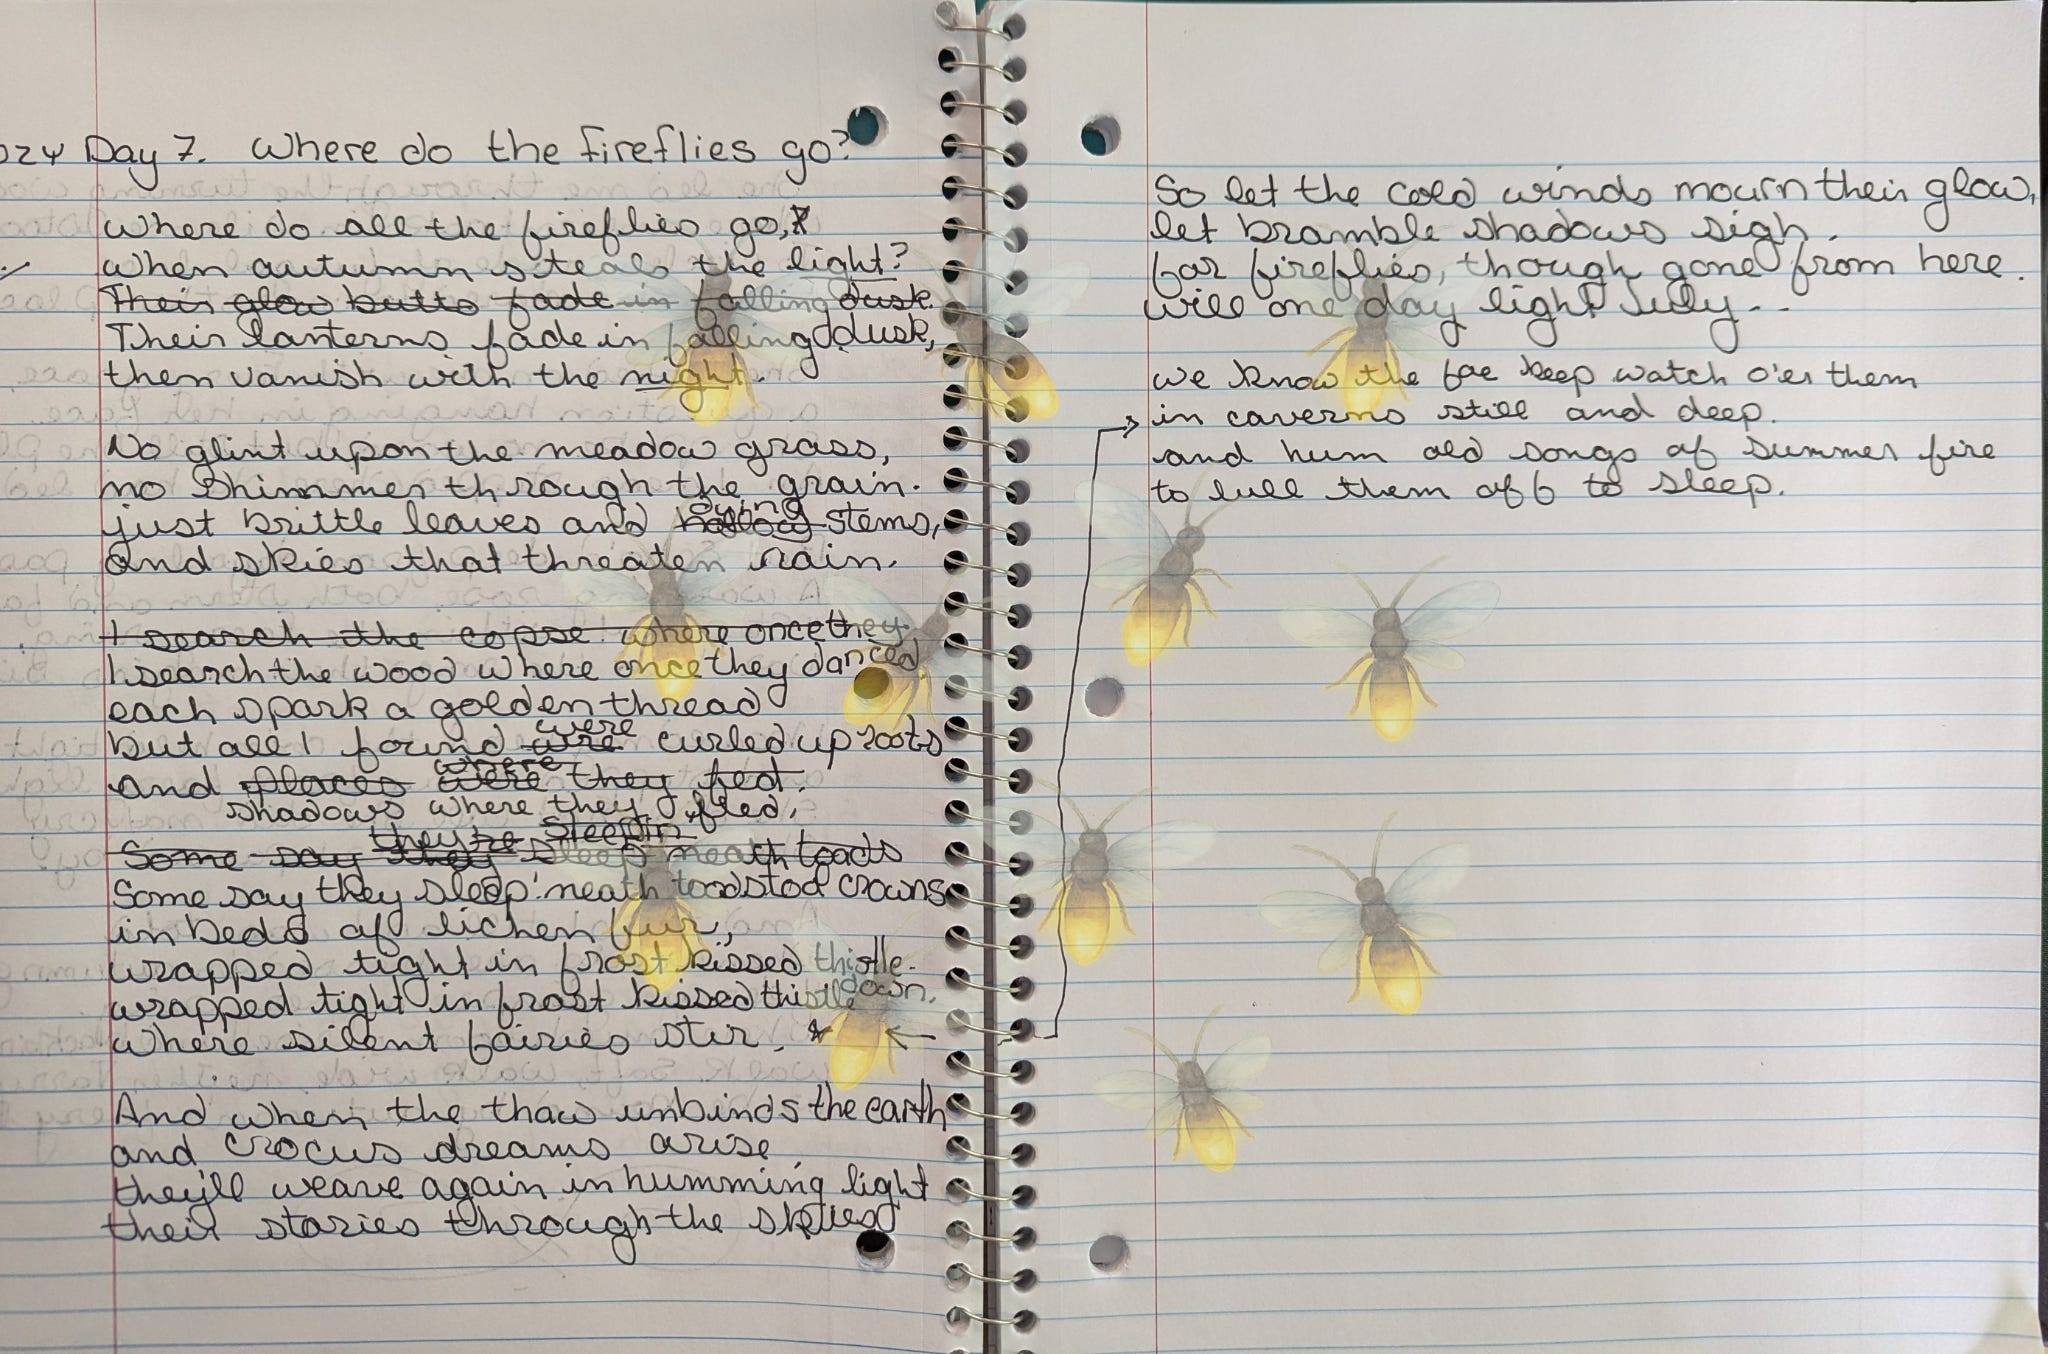 024 Day 7. Where do the fireflies go?
Where do all the fireflies go,
when autumn steals the light?
Their glow butts fade in falling dusk.
Their lanterns fade in falling dusk,
then vanish with the night.
No glint upon the meadow grass,
no shimmer through the grain.
dying
just brittle leaves and hollow stems,
and skies that threaten rain.
I search the copse where once they
I search the wood where once they danced
each spark a golden thread
were
but all I found are curled up roots
where
and places were they fed.
shadows where they fled.
they're sleepin
Some say they sleep neath toads
Some say they sleep 'neath toadstool crowns
in beds of lichen fur,
wrapped tight in frost kissed thistle-
down.
wrapped tight in frost kissed thistle
where silent fairies stir. *
And when the thaw unbinds the earth
and crocus dreams arise
they'll weave again in humming light
their stories through the skies
So let the cold winds mourn their glow,
let bramble shadows sigh.
for fireflies, though gone from here.
will one day light July...
we know the fae keep watch o'er them
in caverns still and deep.
and hum old songs of summer fire
to lull them off to sleep.